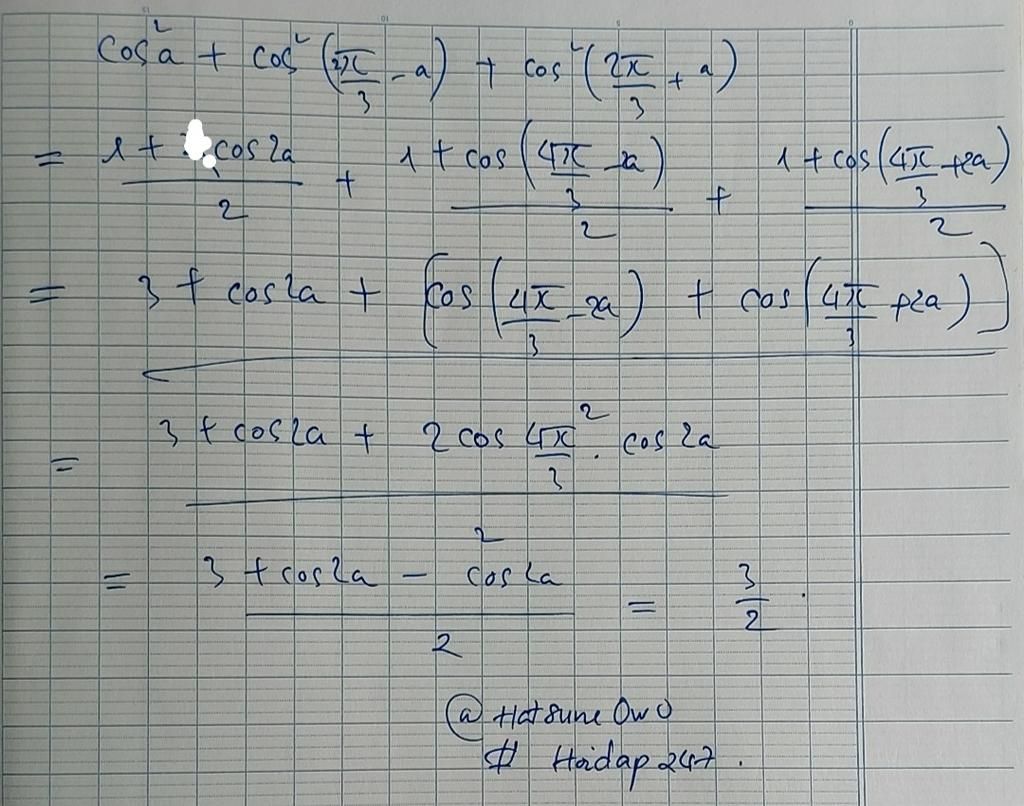 cos²a + cos²(2π/3 - a) + cos²(2π/3 + a)
= (1 + cos2a)/2 + (1 + cos(4π/3 - 2a))/2 + (1 + cos(4π/3 + 2a))/2
= (3 + cos2a + [cos(4π/3 - 2a) + cos(4π/3 + 2a)])/2
= (3 + cos2a + 2cos 4π/3 . cos2a)/2
= (3 + cos2a - cos2a)/2 = 3/2.
@ Hatsune OwO
# Hoidap 247.